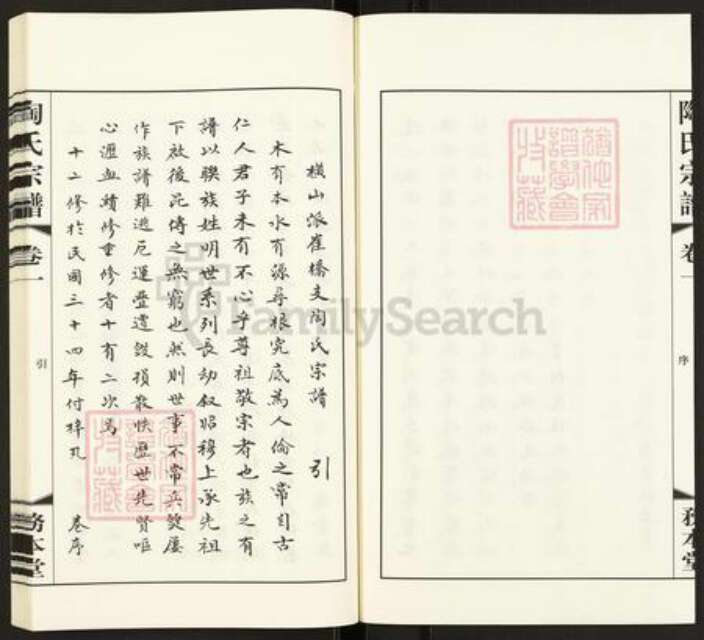 陶氏宗譜
卷一
序
務本堂
橫山派崔橋支陶氏宗譜 引
木有本水有源尋根究底為人倫之常自古
仁人君子未有不心乎尊祖敬宗者也族之有
譜以聯族姓明世系列長幼叙昭穆上承先祖
下啟後昆傳之無窮也然則世事不常兵燹屢
作族譜難逃厄運疊遭毀損散佚歷世先賢嘔
心瀝血續修重修者十有二次焉
十二修於民國三十四年付梓凡 卷序
陶氏宗譜
卷一
引
務本堂
FamilySearch